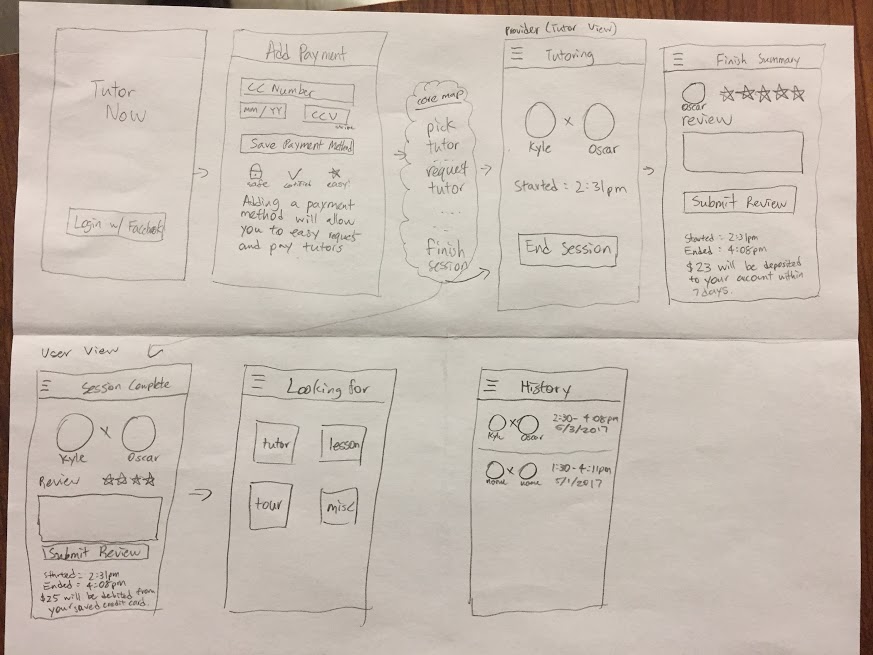 Tutor
Now
Login w/ Facebook
Add Payment
CC Number
mm / YY
CCV
stripe
Save Payment Method
safe
control
easy!
Adding a payment
method will allow
you to easy request
and pay tutors
core map
pick
tutor
...
request
tutor
...
...
finish
session
Provider (Tutor View)
Tutoring
x
Kyle
Oscar
Started : 2:31pm
End Session
Finish Summary
Oscar
review
Submit Review
Started : 2:31pm
Ended : 4:08pm
$23 will be deposited
to your account within
7 days.
User View
Session Complete
x
Kyle
Oscar
Review
Submit Review
Started : 2:31pm
Ended : 4:08pm
$25 will be debited from
your saved credit card.
Looking for
tutor
lesson
tour
misc
History
x
Kyle
Oscar
2:30 - 4:08pm
5/3/2017
x
name
name
1:30 - 4:11pm
5/1/2017